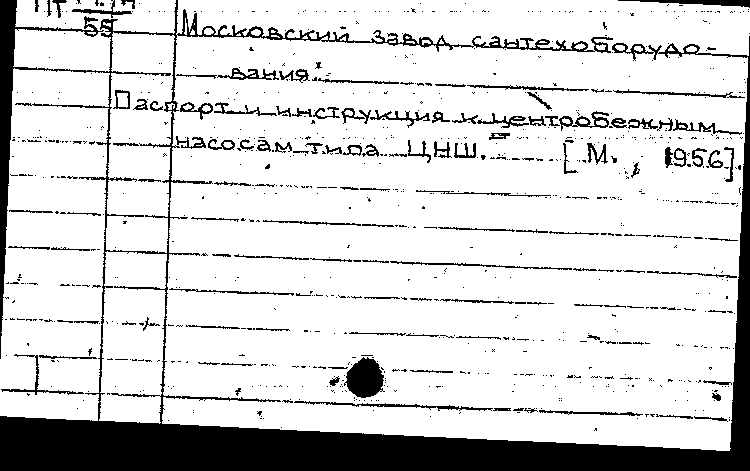 55
Московский завод сантехоборудо-
вания.
Паспорт и инструкция к центробежным
насосам типа ЦНШ. [М., 1956].